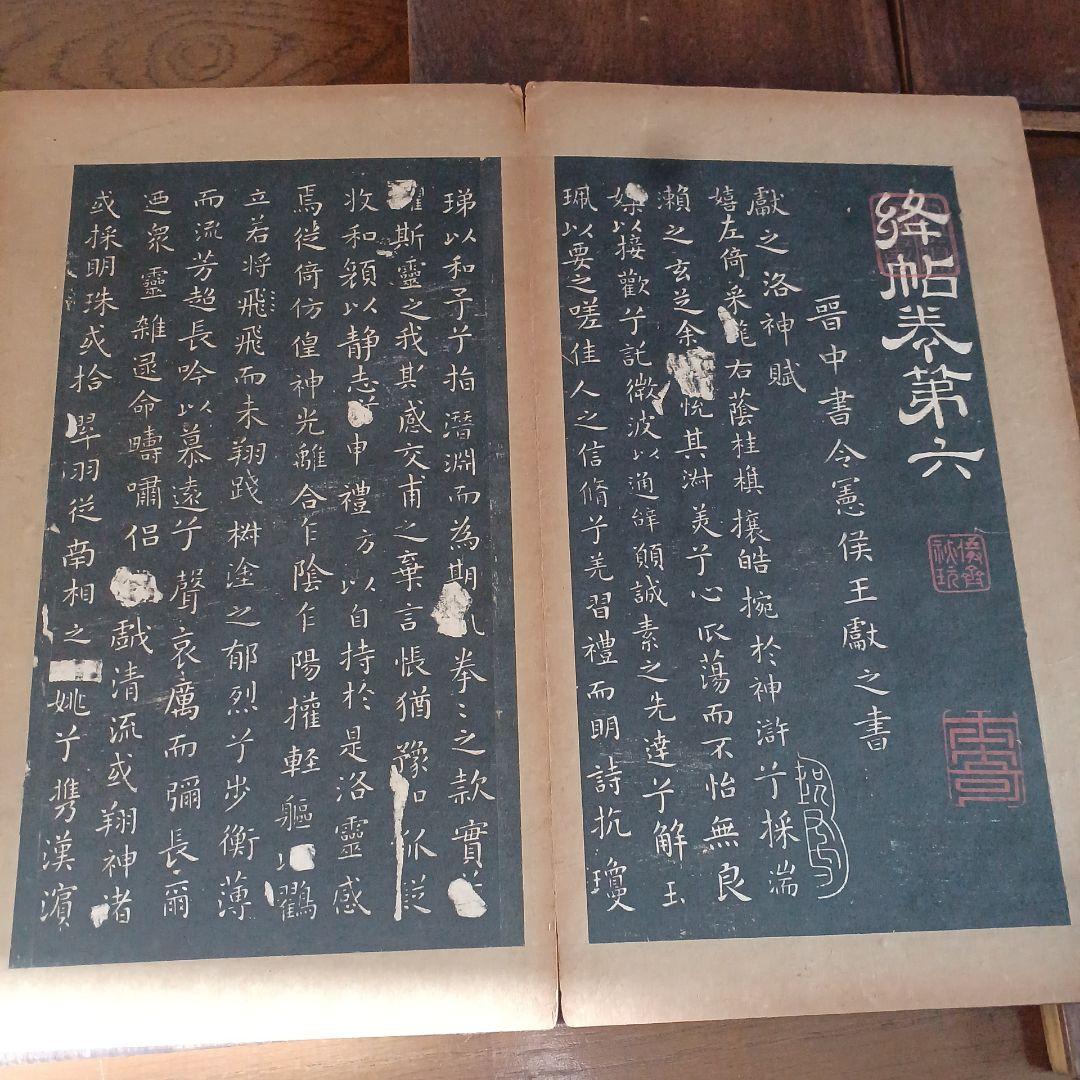 絳帖卷第六
晉中書令憲侯王獻之書
獻之洛神賦
嬉左倚采旄右蔭桂旗攘皓捥於神滸兮採湍
瀨之玄芝余悅其淑美兮心振蕩而不怡無良
媒以接歡兮託微波以通辭願誠素之先達兮解玉
珮以要之嗟佳人之信脩兮羌習禮而明詩抗瓊
珶以和予兮指潛淵而為期執拳〻之款實
斯靈之我其感交甫之棄言悵猶豫而狐疑
收和顏以静志兮申禮方以自持於是洛靈感
焉徙倚仿偟神光離合乍陰乍陽擢輕軀以鸛
立若將飛飛而未翔踐椒塗之郁烈兮步衡薄
而流芳超長吟以慕遠兮聲哀厲而彌長爾
迺眾靈雜遝命疇嘯侶戲清流或翔神渚
或採明珠或拾翠羽從南相之姚兮攜漢濱